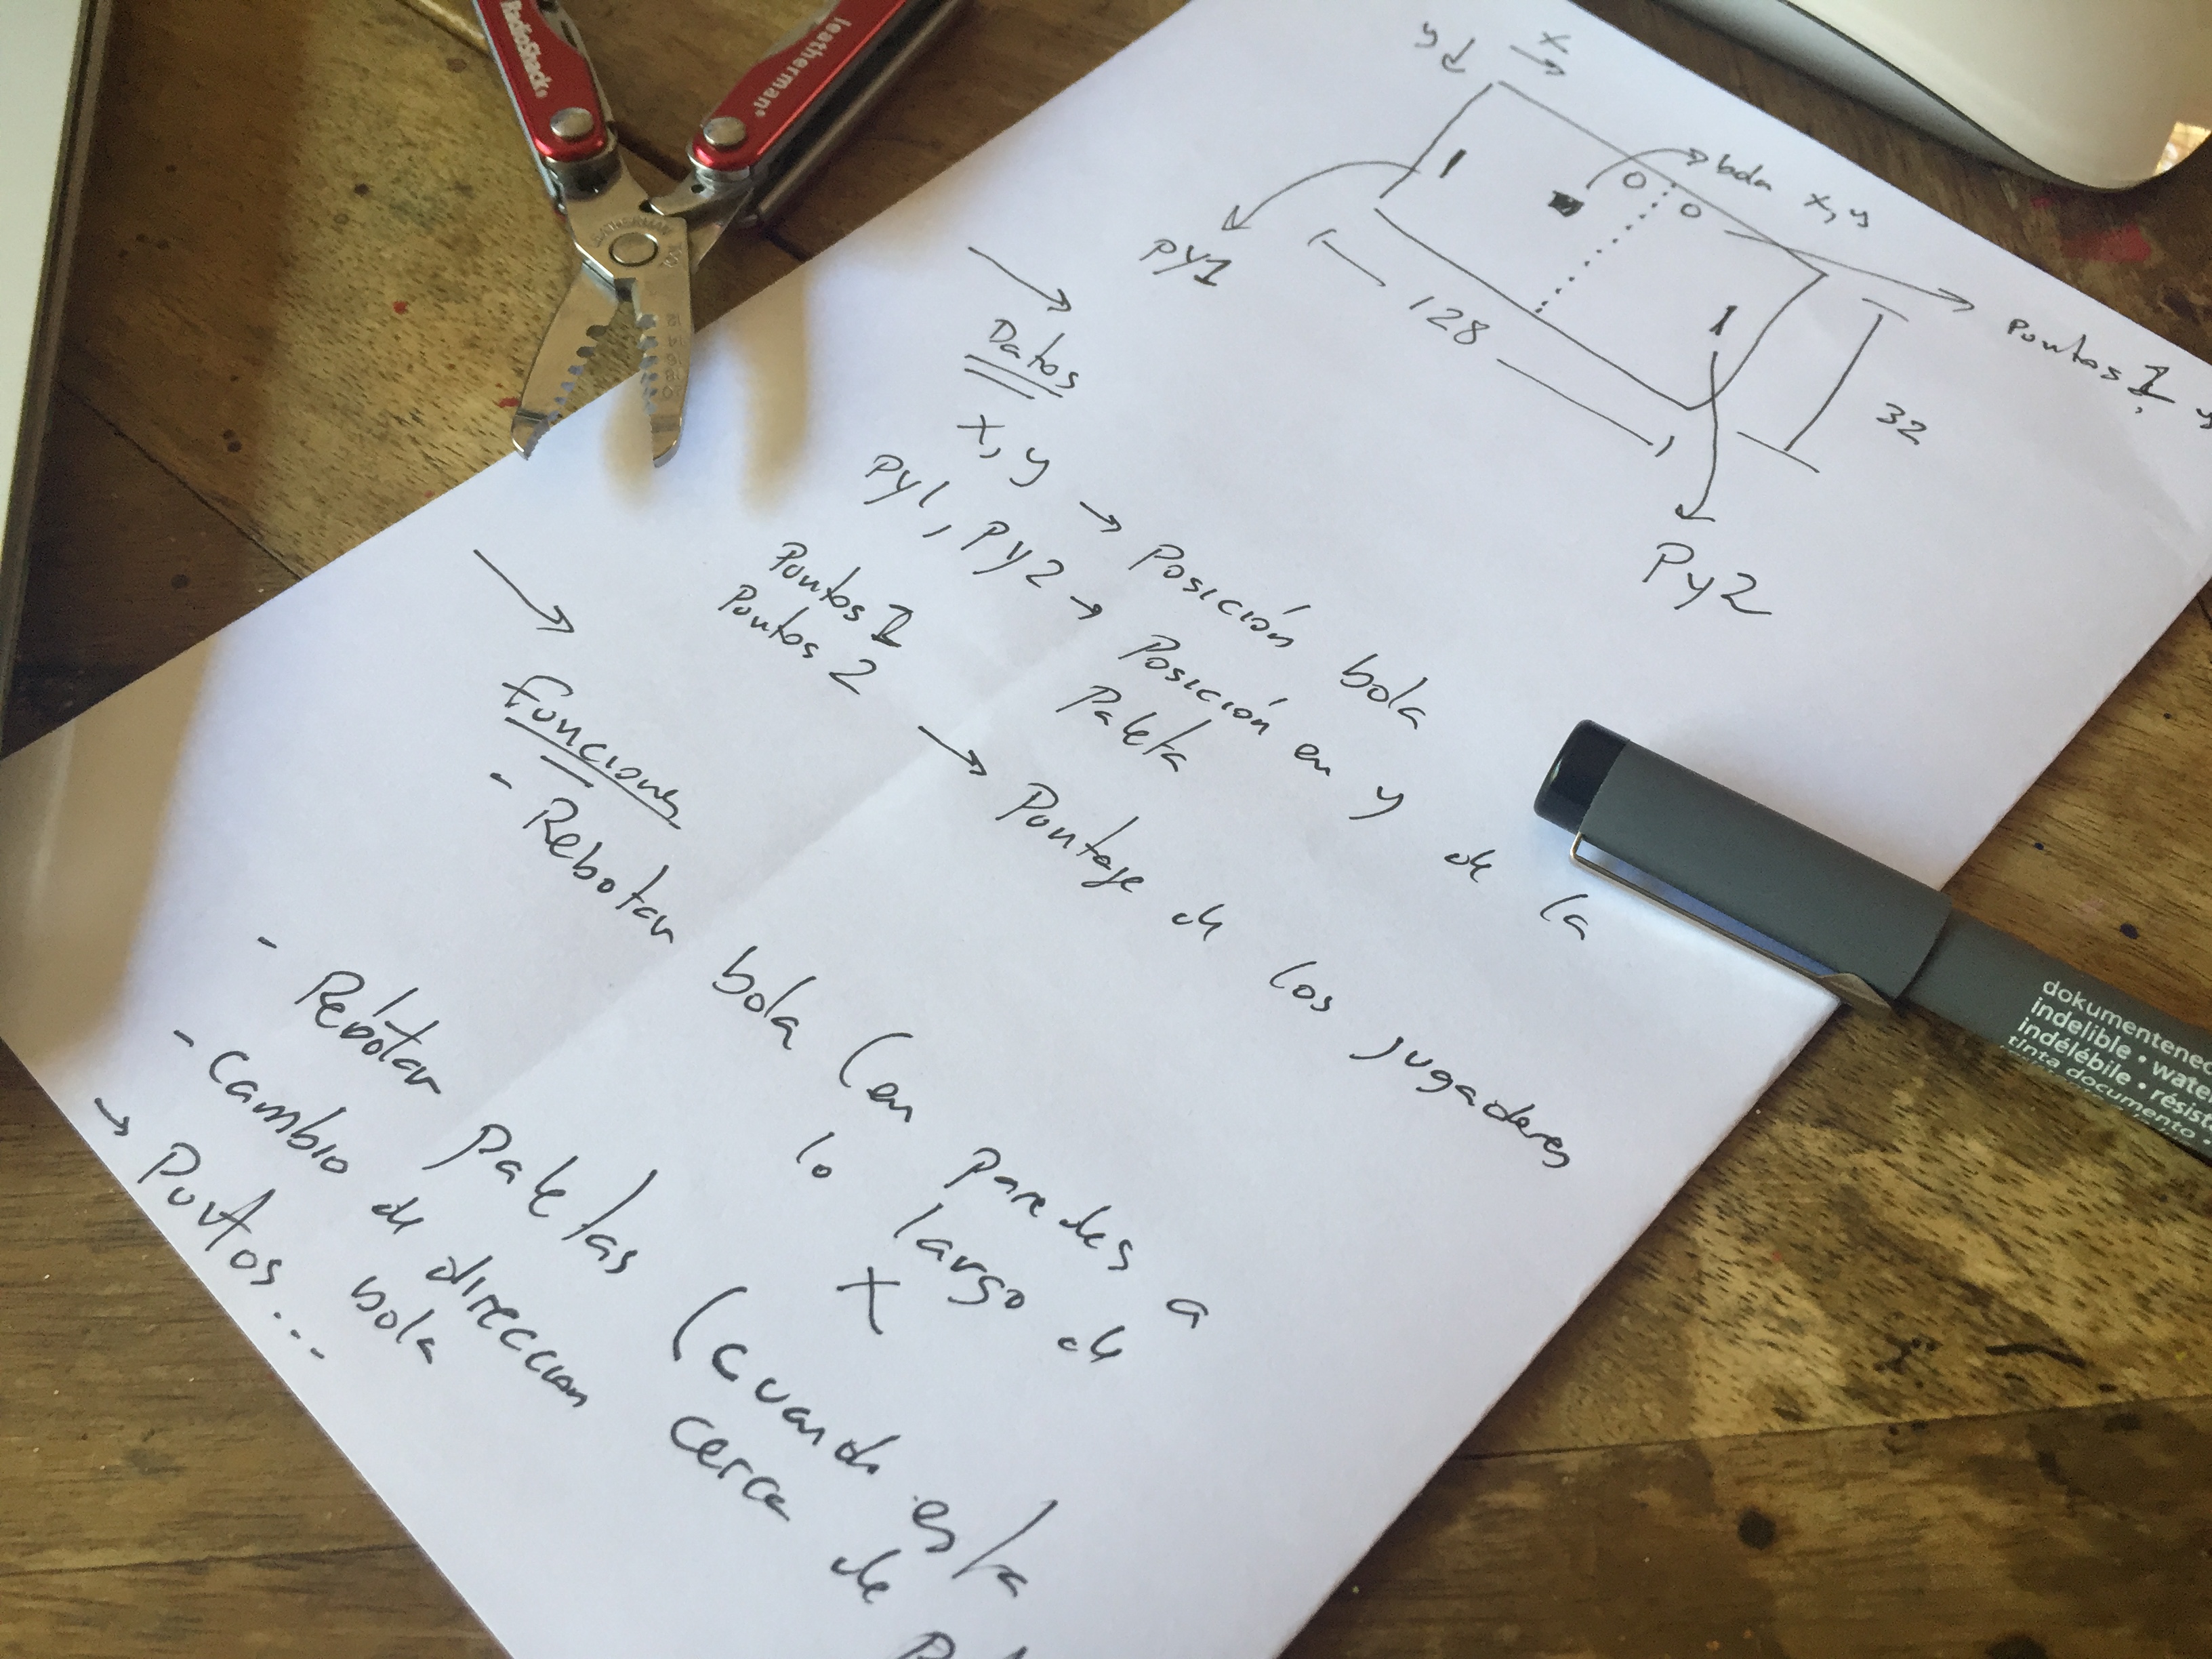 RadioShack
leatherman
y x
bola x, y
0 0
PY1
128
32
Puntos 1
PY2
Datos
x, y → Posición bola
PY1, PY2 → Posición en y de la
Paleta
Puntos 1
Puntos 2 → Puntaje de los jugadores
Funciones
- Rebotar bola (en paredes a
lo largo de
X
- Rebotar paletas (cuando esta
cerca de
- Cambio de direccion
bola
→ Puntos...
indelible •
indélébile •
tinta documento